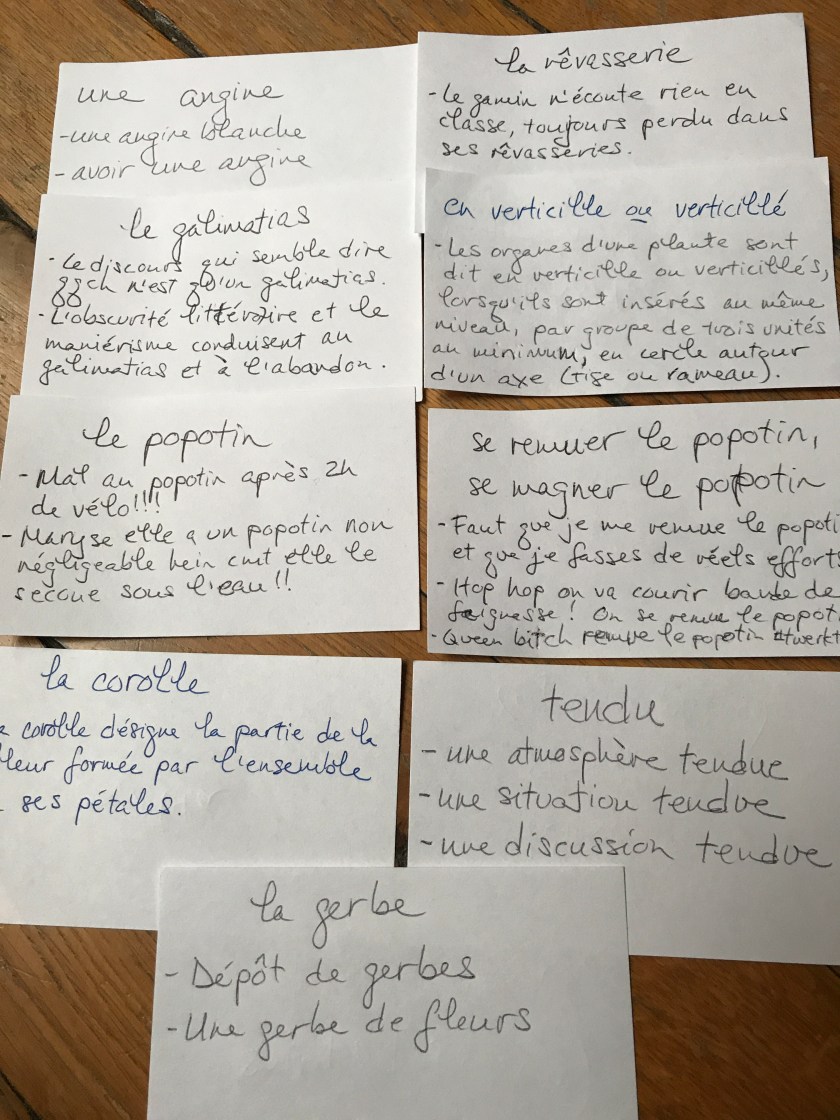 une angine
- une angine blanche
- avoir une angine
la rêvasserie
- Le gamin n'écoute rien en
classe, toujours perdu dans
ses rêvasseries.
le galimatias
- Le discours qui semble dire
qqch n'est qu'un galimatias.
- L'obscurité littéraire et le
maniérisme conduisent au
galimatias et à l'abandon.
en verticille ou verticillé
- Les organes d'une plante sont
dit en verticille ou verticillés,
lorsqu'ils sont insérés au même
niveau, par groupe de trois unités
au minimum, en cercle autour
d'un axe (tige ou rameau).
le popotin
- Mal au popotin après 2h
de vélo!!!
- Maryse elle a un popotin non
négligeable hein cmt elle le
secoue sous l'eau!!
se remuer le popotin,
se magner le popotin
- Faut que je me remue le popoti
et que je fasses de réels efforts
- Hop hop on va courir bande de
feignesse! On se remue le popot
- Queen bitch remue le popotin #twerkt
la corolle
a corolle désigne la partie de la
leur formée par l'ensemble
ses pétales.
tendu
- une atmosphère tendue
- une situation tendue
- une discussion tendue
la gerbe
- Dépôt de gerbes
- Une gerbe de fleurs